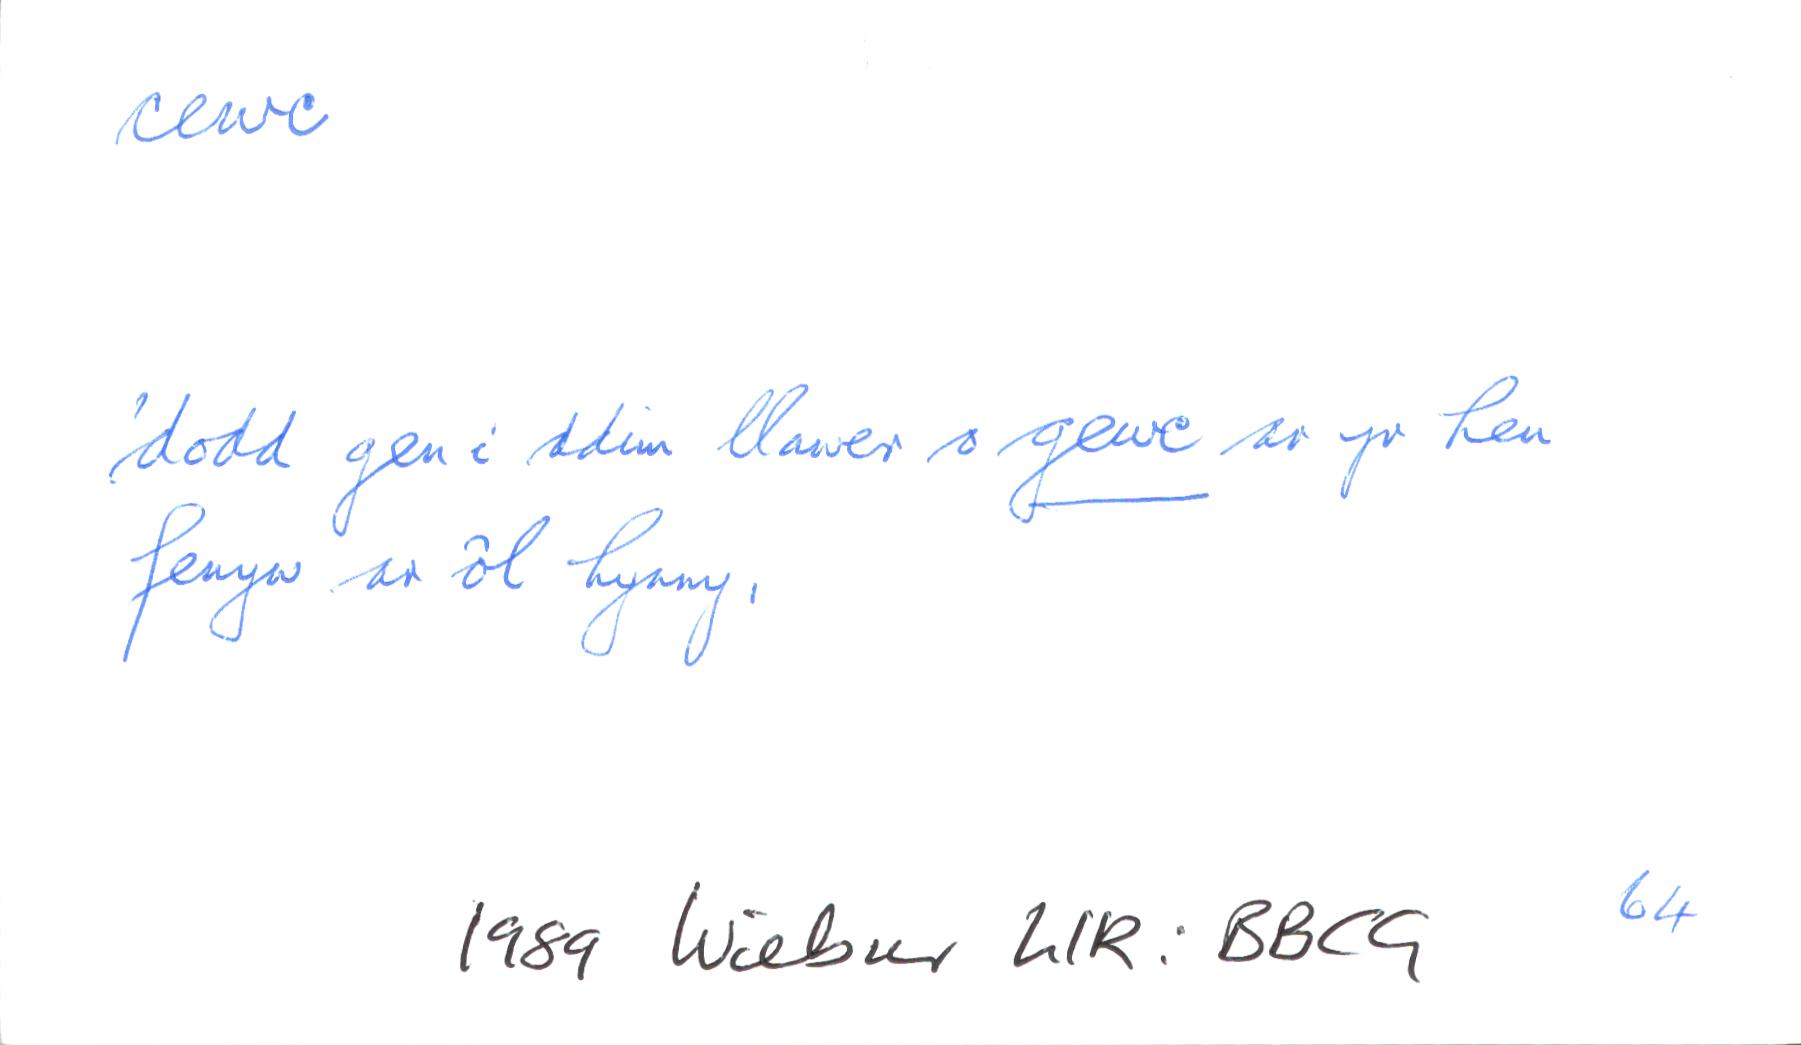 cewc
'dodd gen i ddim llawer o gewc ar yr hen
fenyw ar ôl hynny.
1989 Wilbur LlR: BBCG 64